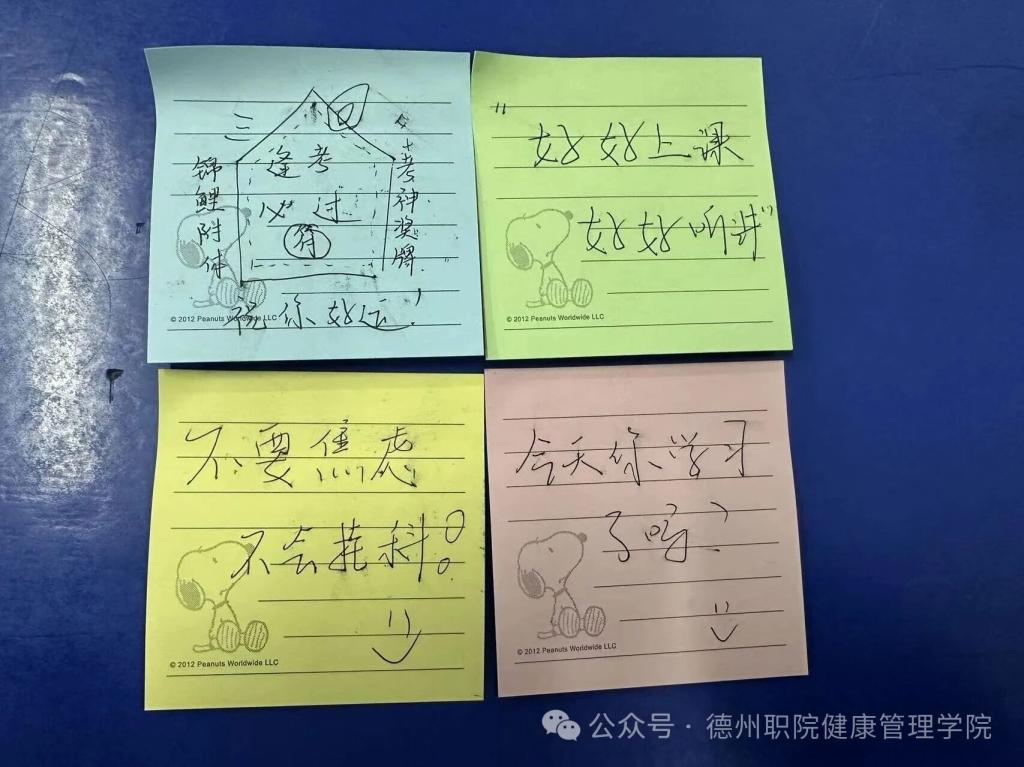 锦鲤附体
逢考
必过
符
考神奖牌
祝你好运!
© 2012 Peanuts Worldwide LLC
"好好上课
好好听讲"
© 2012 Peanuts Worldwide LLC
不要焦虑
不会挂科!
© 2012 Peanuts Worldwide LLC
今天你学习
了吗?
© 2012 Peanuts Worldwide LLC
公众号·德州职院健康管理学院